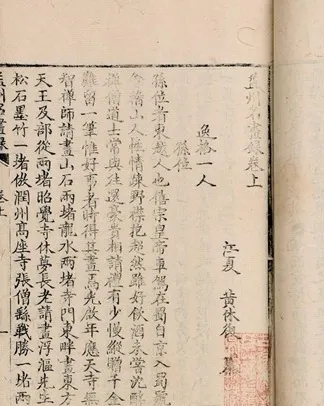 益州名畫録卷上
江夏 黃休復 纂
逸格一人
孫位
孫位者東越人也僖宗皇帝車駕在蜀自京入蜀號
會稽山人性情疎野襟抱超然雖好飲酒未甞沈酩
禪僧道士常與往還豪貴相請禮有少慢縱贈千金
難留一筆惟好事者時得其畫焉光啟年應天寺無
智禪師請畫山石兩堵龍水兩堵寺門東畔畫東方
天王及部從兩堵昭覺寺休夢長老請畫浮漚先生
松石墨竹一堵倣潤州高座寺張僧繇戰勝一堵兩
益州名畫録 卷上